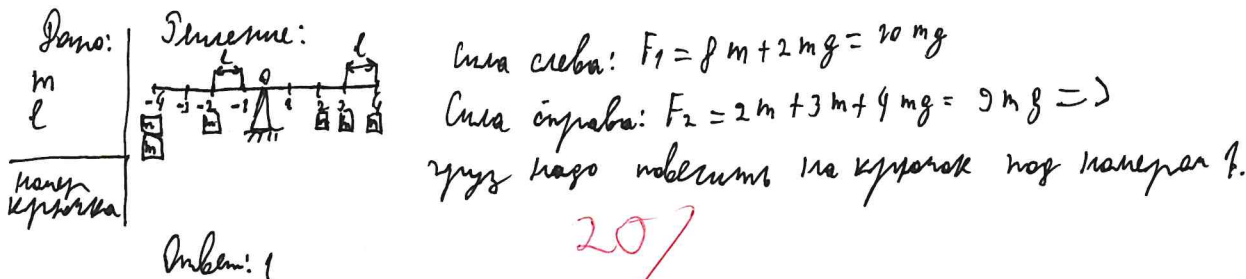 Дано: Решение:
m
l
номер крючка
l l
-4 -3 -2 -1 0 1 2 3 4
m m m m m
m
Сила слева: F₁ = 8m + 2mg = 10mg
Сила справа: F₂ = 2m + 3m + 4mg = 9mg =>
груз надо повесить на крючок под номером 1.
20/
Ответ: 1